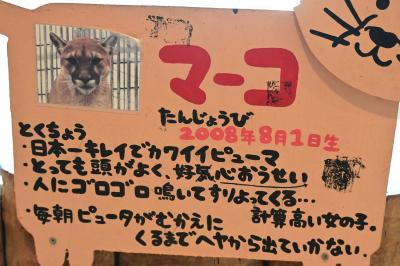 マーコ
たんじょうび
2008年8月1日生
とくちょう
・日本一キレイでカワイイピューマ
・とっても頭がよく、好奇心おうせい
・人にゴロゴロ鳴いてすりよってくる…
計算高い女の子。
・毎朝ピュータがむかえに
くるまでヘヤから出ていかない.